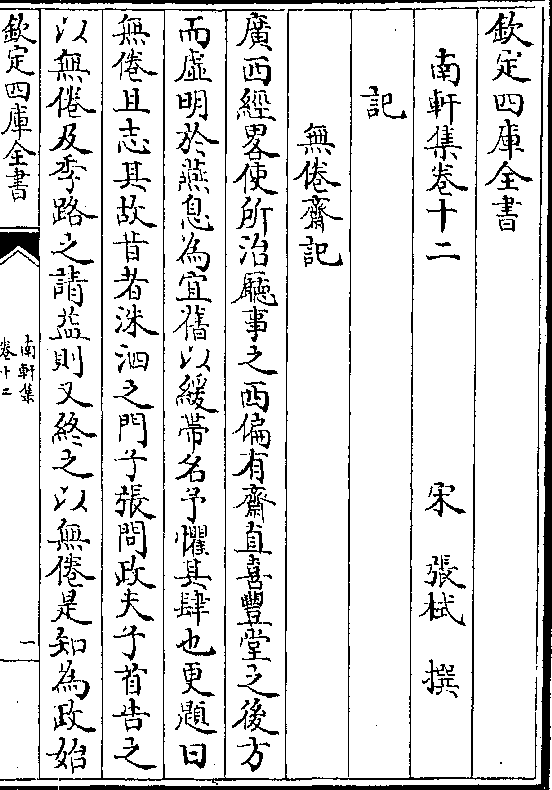 欽定四庫全書
南軒集卷十二
宋 張栻 撰
記
無倦齋記
廣西經畧使所治廳事之西偏有齋直喜豐堂之後方
而虛明於燕息為宜舊以緩帶名予懼其肆也更題曰
無倦且志其故昔者洙泗之門子張問政夫子首告之
以無倦及季路之請益則又終之以無倦是知為政始
欽定四庫全書
南軒集
卷十二
一